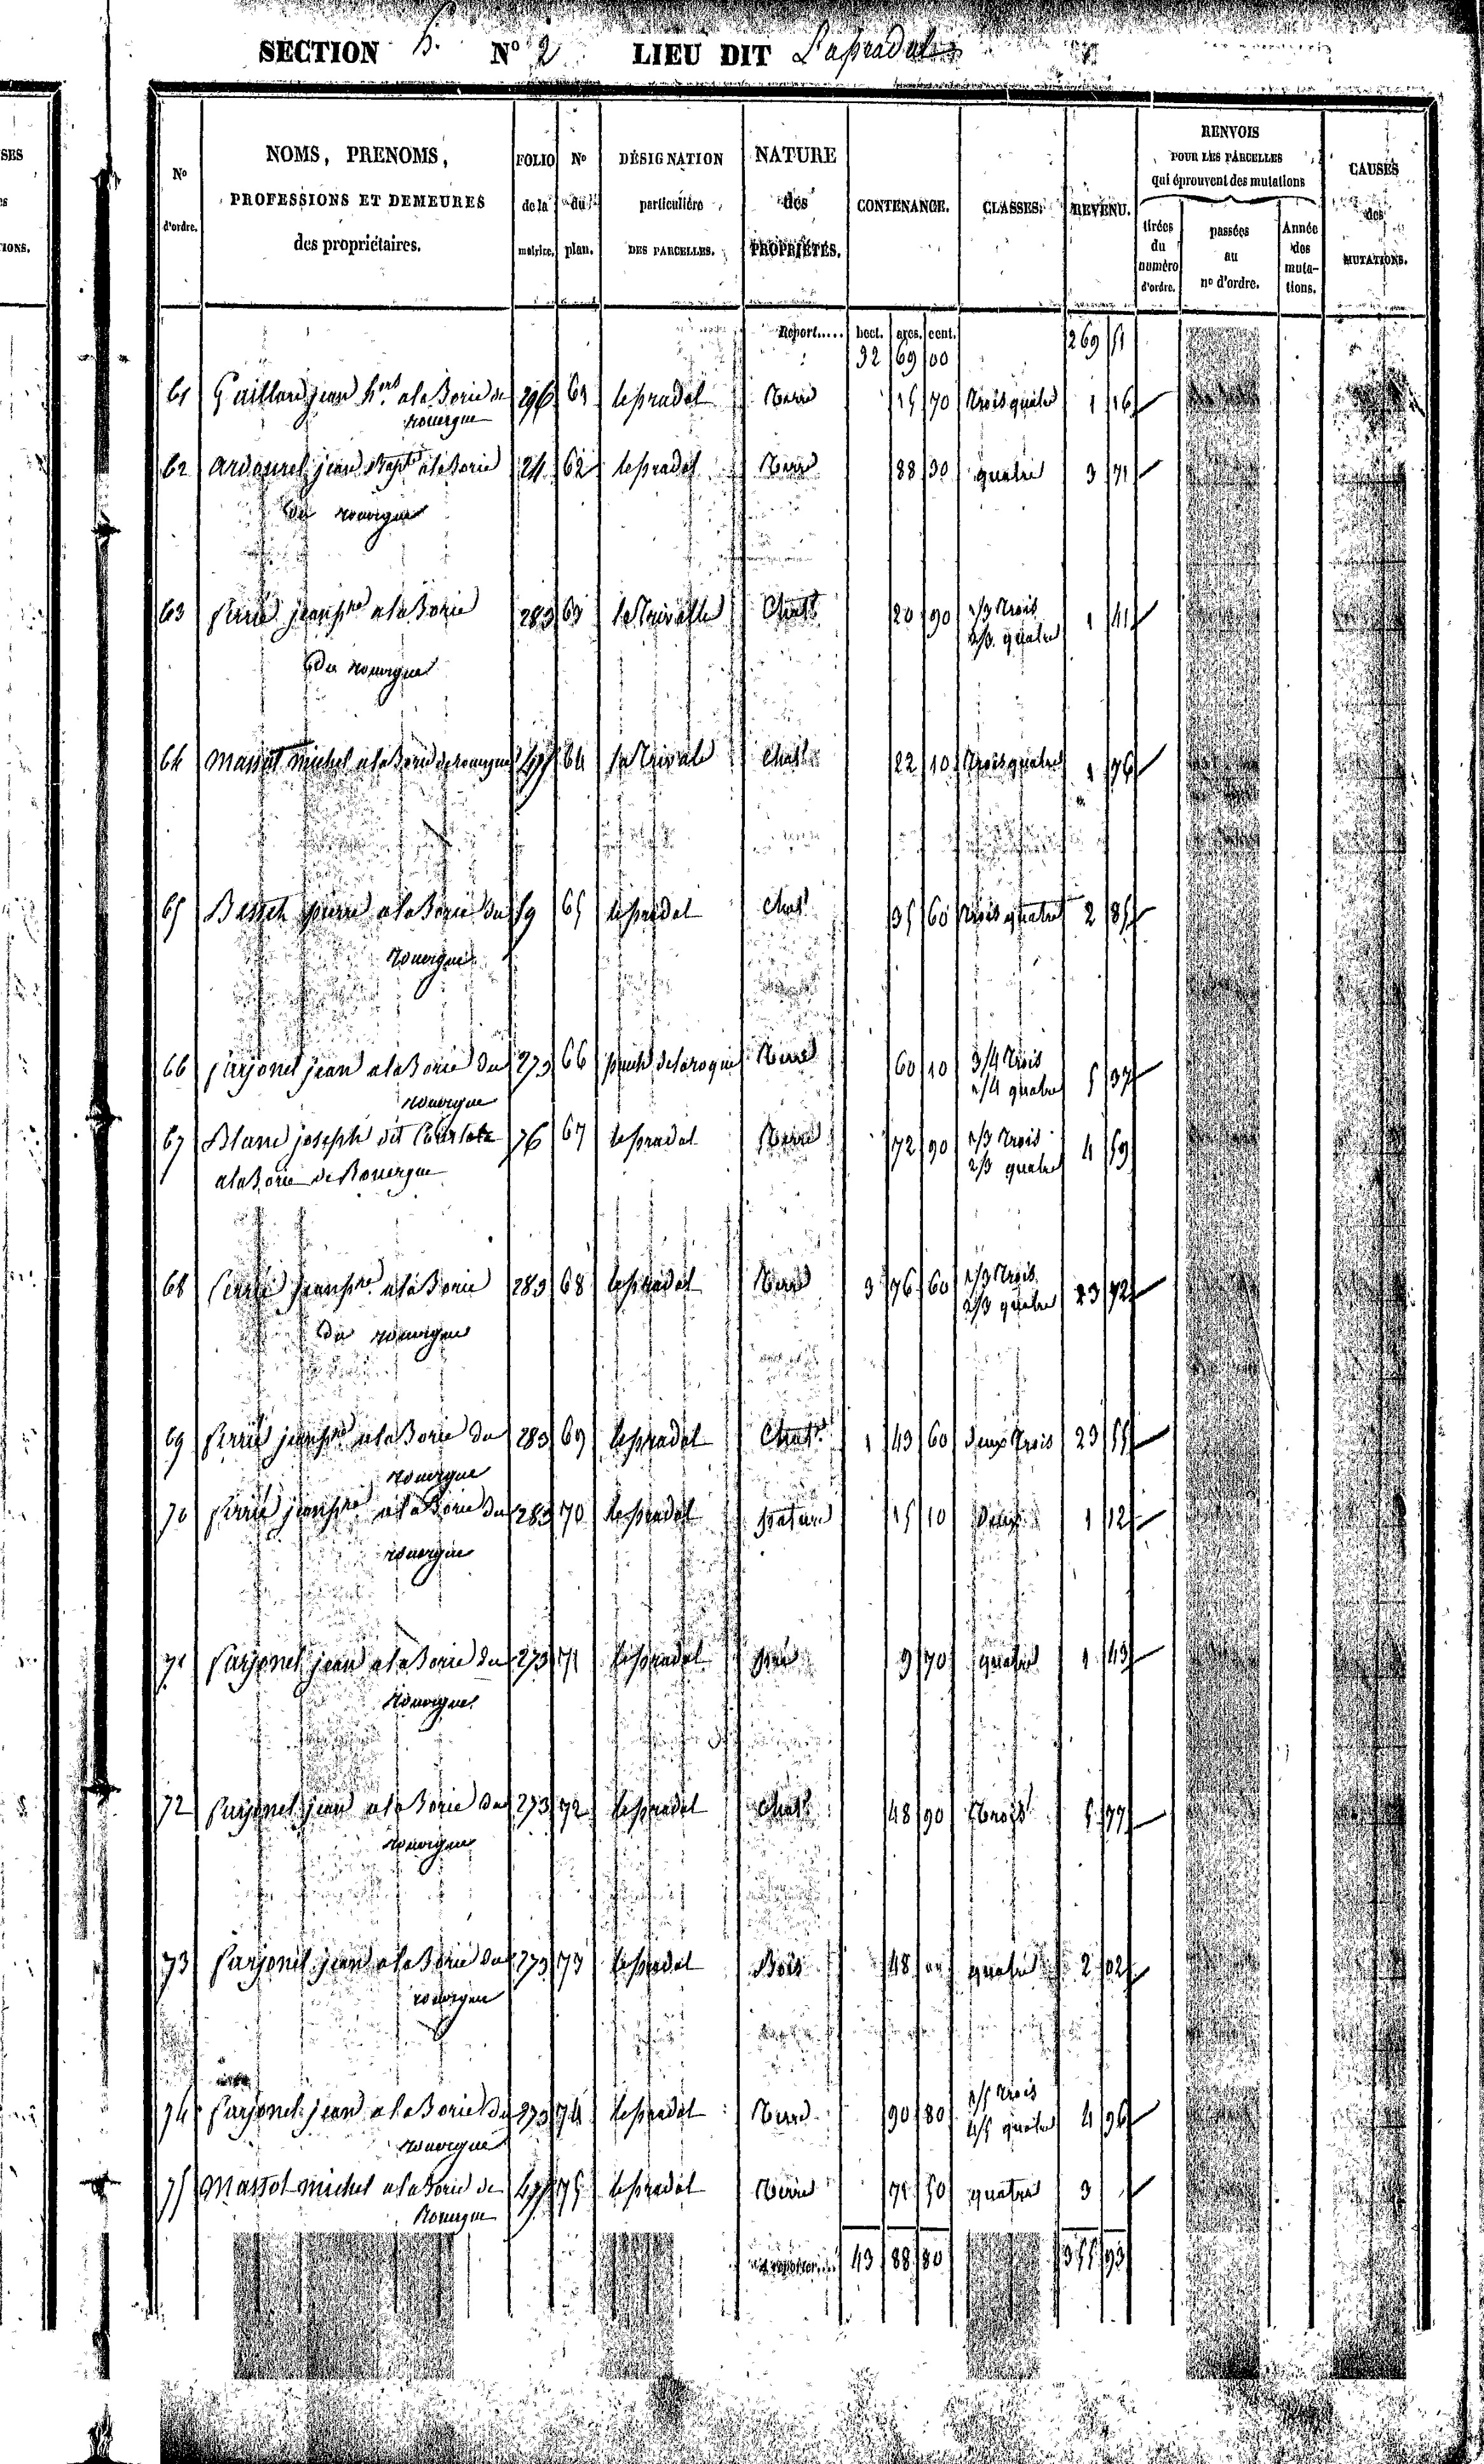 SECTION h. N° 2 LIEU DIT
N° d'ordre.
NOMS, PRENOMS,
PROFESSIONS ET DEMEURES
des propriétaires.
FOLIO de la matrice.
N° du plan.
DÉSIGNATION
particulière
DES PARCELLES.
NATURE
des
PROPRIÉTÉS.
CONTENANCE.
CLASSES.
REVENU.
RENVOIS
POUR LES PARCELLES
qui éprouvent des mutations
tirées du numéro d'ordre.
passées au n° d'ordre.
Année des mutations.
CAUSES
des
MUTATIONS.
SES
IONS.
Report..... hect. ares. cent.
32 69 00 269 51
61 Gaillard jean hers ala Borie de 296 61 le pradel terre 15 70 trois quatre 1 16
rouergue
62 ardourel jean Bapte ala Borie 24 62 le pradel terre 88 30 quatre 3 71
du rouergue
63 Perrié jean pre ala Borie 283 63 la trivalle Chat 20 90 1/3 trois 1 41
2/3 quatre
du rouergue
64 massot michel ala Borie de rouergue 64 la trivale Chat 22 10 trois quatre 1 76
65 Besset pierre ala Borie du 59 65 le pradel Chat 35 60 trois quatre 2 85
rouergue
66 parjonel jean ala Borie du 273 66 puech delaroque terre 60 10 3/4 trois 5 37
1/4 quatre
rouergue
67 Blanc joseph dit 76 67 le pradel terre 72 90 1/3 trois 4 59
2/3 quatre
ala Borie de Rouergue
68 Perrié jean pre ala Borie 283 68 le pradel terre 3 76 60 1/3 trois 23 72
2/3 quatre
du rouergue
69 Perrié jean pre ala Borie du 283 69 le pradel Chat 1 43 60 deux trois 23 55
rouergue
70 Perrié jean pre ala Borie du 283 70 le pradel pature 15 10 Deux 1 12
rouergue
71 parjonel jean ala Borie du 273 71 le pradel pré 9 70 quatre 1 43
rouergue
72 parjonel jean ala Borie du 273 72 le pradel Chat 48 90 trois 5 77
rouergue
73 parjonel jean ala Borie du 273 73 le pradel Bois 48 quatre 2 02
rouergue
74 parjonel jean ala Borie du 273 74 le pradel terre 90 80 1/5 trois 4 96
4/5 quatre
rouergue
75 massot michel ala Borie de 75 le pradel terre 71 50 quatre 3
Rouergue
A reporter... 43 88 80 355 93